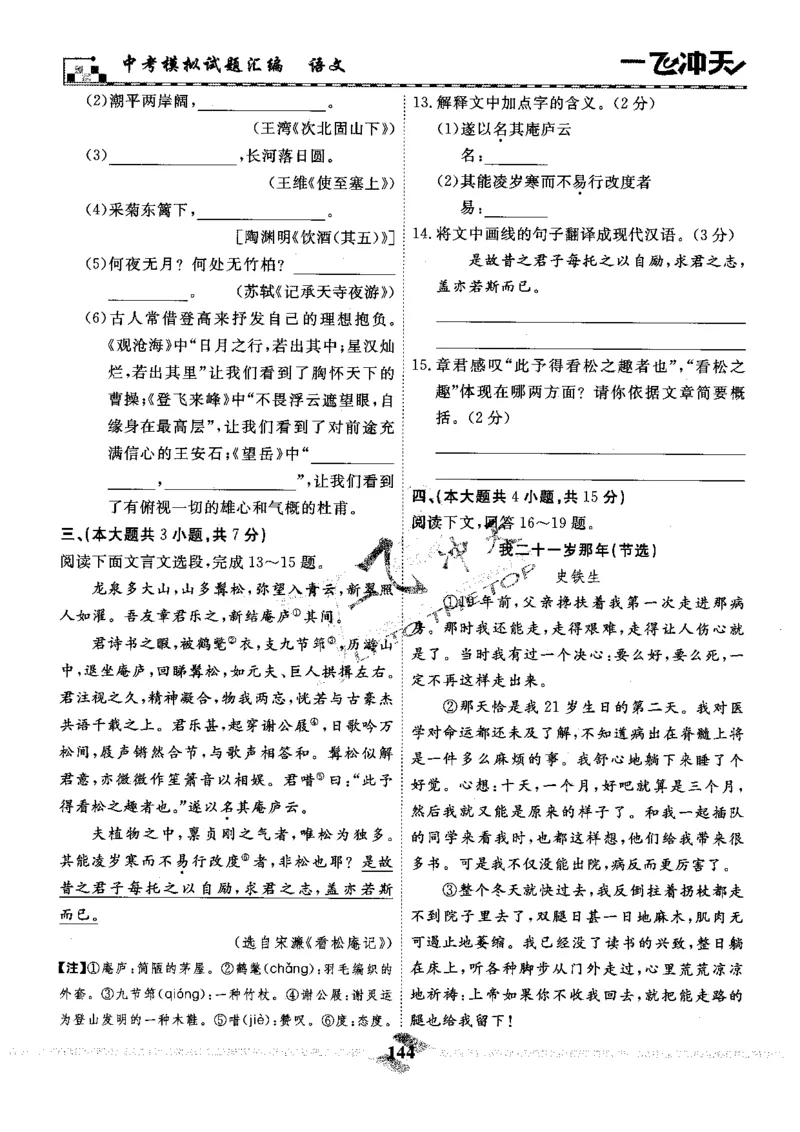 中考模拟试题汇编 语文
一飞冲天
(2)潮平两岸阔,____________。
(王湾《次北固山下》)
(3)____________,长河落日圆。
(王维《使至塞上》)
(4)采菊东篱下,____________。
[陶渊明《饮酒(其五)》]
(5)何夜无月?何处无竹柏?________
________。 (苏轼《记承天寺夜游》)
(6)古人常借登高来抒发自己的理想抱负。
《观沧海》中“日月之行,若出其中;星汉灿
烂,若出其里”让我们看到了胸怀天下的
曹操;《登飞来峰》中“不畏浮云遮望眼,自
缘身在最高层”,让我们看到了对前途充
满信心的王安石;《望岳》中“________
____,____________”,让我们看到
了有俯视一切的雄心和气概的杜甫。
三、(本大题共3小题,共7分)
阅读下面文言文选段,完成13~15题。
龙泉多大山,山多髯松,弥望入青云,新翠照
人如濯。吾友章君乐之,新结庵庐①其间。
君诗书之暇,被鹤氅②衣,支九节筇③,历游山
中,退坐庵庐,回睇髯松,如元夫、巨人拱揖左右。
君注视之久,精神凝合,物我两忘,恍若与古豪杰
共语千载之上。君乐甚,起穿谢公屐④,日歌吟万
松间,屐声锵然合节,与歌声相答和。髯松似解
君意,亦微微作笙箫音以相娱。君唶⑤曰:“此予
得看松之趣者也。”遂以名其庵庐云。
夫植物之中,禀贞刚之气者,唯松为独多。
其能凌岁寒而不易行改度⑥者,非松也耶?是故
昔之君子每托之以自励,求君之志,盖亦若斯
而已。
(选自宋濂《看松庵记》)
【注】①庵庐:简陋的茅屋。②鹤氅(chǎng):羽毛编织的
外套。③九节筇(qióng):一种竹杖。④谢公屐:谢灵运
为登山发明的一种木鞋。⑤唶(jiè):赞叹。⑥度:态度。
13.解释文中加点字的含义。(2分)
(1)遂以名其庵庐云
名:______
(2)其能凌岁寒而不易行改度者
易:______
14.将文中画线的句子翻译成现代汉语。(3分)
是故昔之君子每托之以自励,求君之志,
盖亦若斯而已。
15.章君感叹“此予得看松之趣者也”,“看松之
趣”体现在哪两方面?请你依据文章简要概
括。(2分)
四、(本大题共4小题,共15分)
阅读下文,回答16~19题。
我二十一岁那年(节选)
史铁生
①19年前,父亲搀扶着我第一次走进那病
房。那时我还能走,走得艰难,走得让人伤心就
是了。当时我有过一个决心:要么好,要么死,一
定不再这样走出来。
②那天恰是我21岁生日的第二天。我对医
学对命运都还未及了解,不知道病出在脊髓上将
是一件多么麻烦的事。我舒心地躺下来睡了个
好觉。心想:十天,一个月,好吧就算是三个月,
然后我就又能是原来的样子了。和我一起插队
的同学来看我时,也都这样想,他们给我带来很
多书。可是我不仅没能出院,病反而更厉害了。
③整个冬天就快过去,我反倒拄着拐杖都走
不到院子里去了,双腿日甚一日地麻木,肌肉无
可遏止地萎缩。我已经没了读书的兴致,整日躺
在床上,听各种脚步从门外走过,心里荒荒凉凉
地祈祷:上帝如果你不收我回去,就把能走路的
腿也给我留下!
144